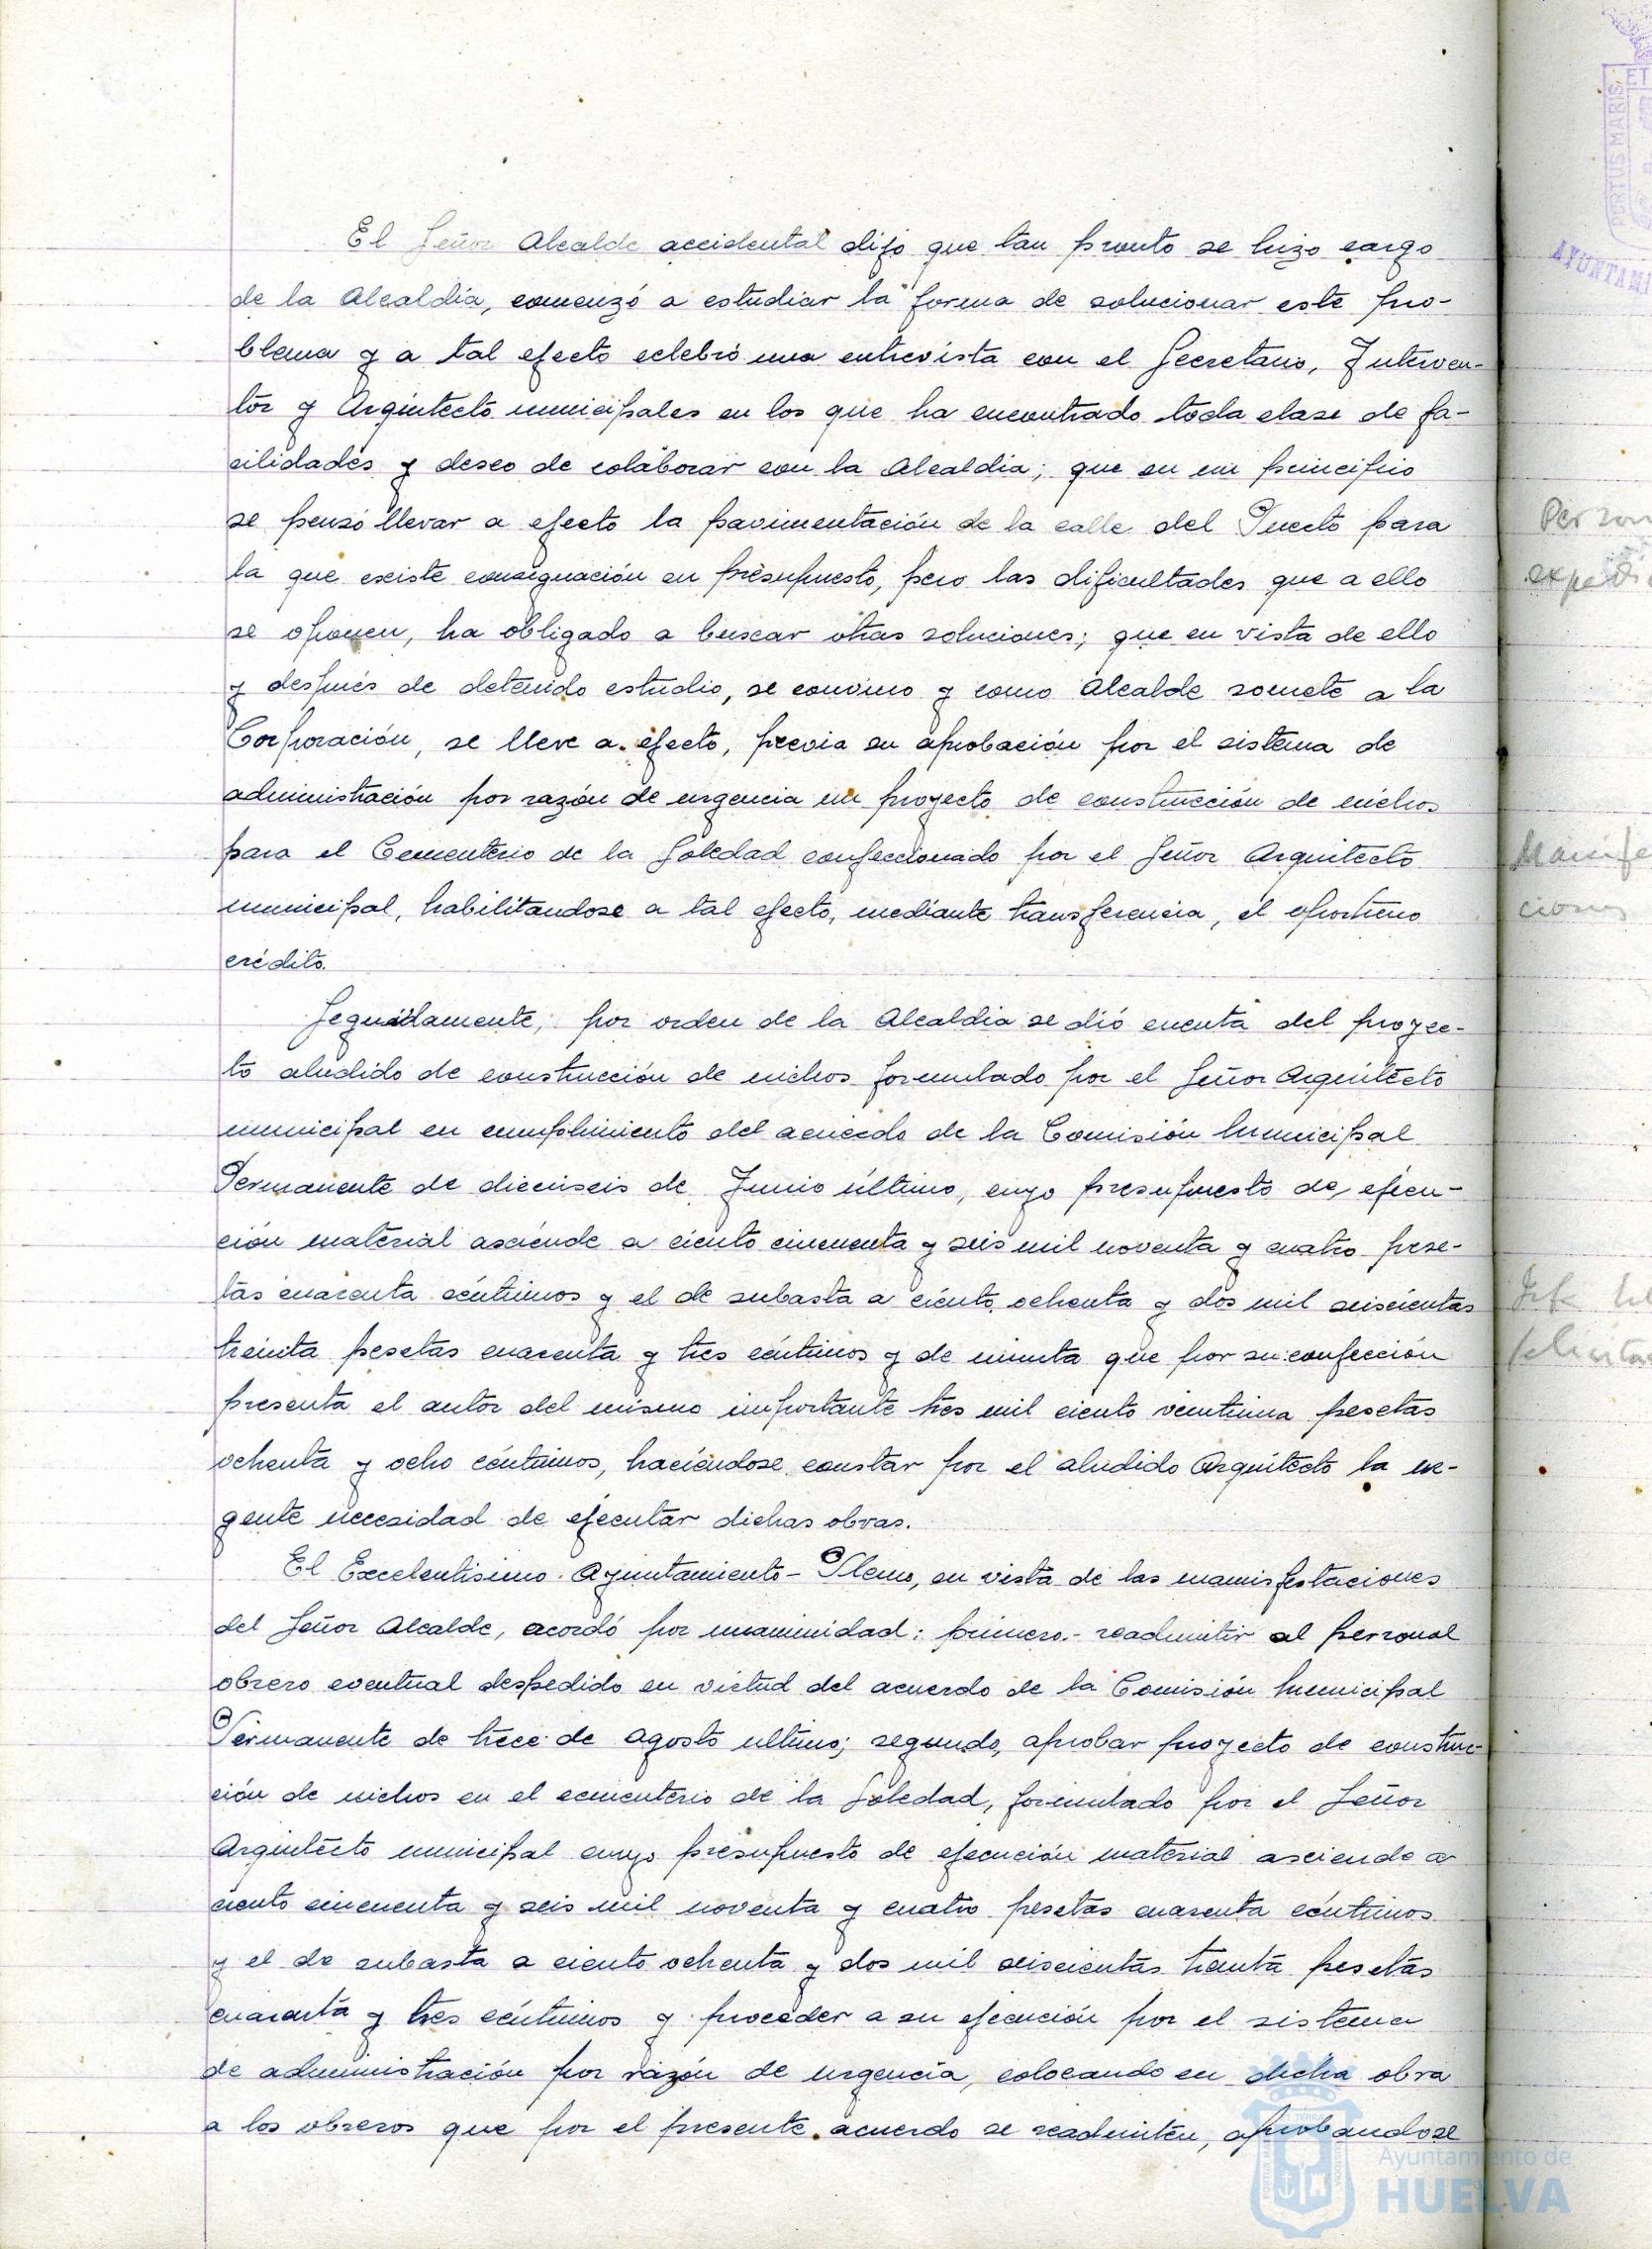 El Señor Alcalde accidental dijo que tan pronto se hizo cargo
de la Alcaldía, comenzó a estudiar la forma de solucionar este pro-
blema y a tal efecto celebró una entrevista con el Secretario, Interven-
tor y Arquitecto municipales en los que ha encontrado toda clase de fa-
cilidades y deseo de colaborar con la Alcaldía; que en un principio
se pensó llevar a efecto la pavimentación de la calle del Puerto para
la que existe consignación en presupuesto, pero las dificultades que a ello
se oponen, ha obligado a buscar otras soluciones; que en vista de ello
y después de detenido estudio, se convino y como Alcalde somete a la
Corporación, se lleve a efecto, previa su aprobación por el sistema de
administración por razón de urgencia un proyecto de construcción de nichos
para el Cementerio de la Soledad confeccionado por el Señor Arquitecto
municipal, habilitandose a tal efecto, mediante transferencia, el oportuno
crédito.
Seguidamente, por orden de la Alcaldía se dió cuenta del proyec-
to aludido de construcción de nichos formulado por el Señor Arquitecto
municipal en cumplimiento del acuerdo de la Comisión Municipal
Permanente de dieciseis de Junio último, cuyo presupuesto de ejecu-
ción material asciende a ciento cincuenta y seis mil noventa y cuatro pese-
tas cuarenta céntimos y el de subasta a ciento ochenta y dos mil seiscientas
treinta pesetas cuarenta y tres céntimos y de minuta que por su confección
presenta el autor del mismo importante tres mil ciento veintiuna pesetas
ochenta y ocho céntimos, haciéndose constar por el aludido Arquitecto la ur-
gente necesidad de ejecutar dichas obras.
El Excelentísimo Ayuntamiento-Pleno, en vista de las manisfestaciones
del Señor Alcalde, acordó por unanimidad: primero.- readmitir al personal
obrero eventual despedido en virtud del acuerdo de la Comisión Municipal
Permanente de trece de Agosto último; segundo, aprobar proyecto de construc-
ción de nichos en el cementerio de la Soledad, formulado por el Señor
Arquitecto municipal cuyo presupuesto de ejecución material asciende a
ciento cincuenta y seis mil noventa y cuatro pesetas cuarenta céntimos
y el de subasta a ciento ochenta y dos mil seiscientas treinta pesetas
cuarenta y tres céntimos y proceder a su ejecución por el sistema
de administración por razón de urgencia, colocando en dicha obra
a los obreros que por el presente acuerdo se readmiten, aprobandose
Ayuntamiento de
HUELVA
PORTUS MARIS
ET
AYUNTAMI
Person
expedi
Manife
ciones